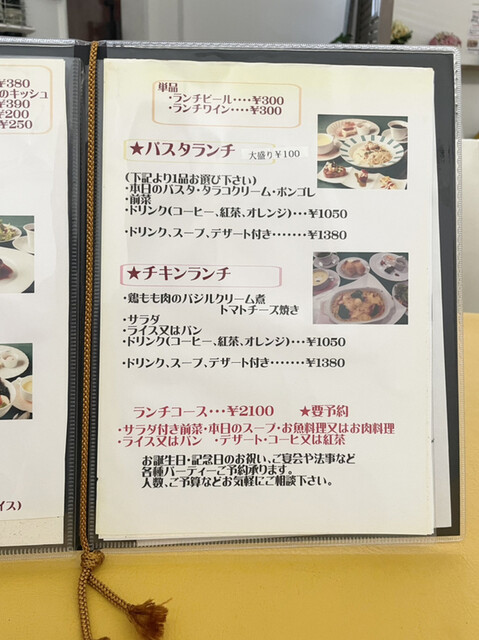 ¥380
のキッシュ
¥390
¥200
¥250
イス)
単品
・ランチビール・・・・¥300
・ランチワイン・・・・¥300
★パスタランチ 大盛り¥100
(下記より1品お選び下さい)
・本日のパスタ・タラコクリーム・ボンゴレ
・前菜
・ドリンク(コーヒー、紅茶、オレンジ)・・・¥1050
・ドリンク、スープ、デザート付き・・・・・・・¥1380
★チキンランチ
・鶏もも肉のバジルクリーム煮
トマトチーズ焼き
・サラダ
・ライス又はパン
・ドリンク(コーヒー、紅茶、オレンジ)・・・¥1050
・ドリンク、スープ、デザート付き・・・・・・・¥1380
ランチコース・・・¥2100 ★要予約
・サラダ付き前菜・本日のスープ・お魚料理又はお肉料理
・ライス又はパン ・デザート・コーヒ又は紅茶
お誕生日・記念日のお祝い、ご宴会や法事など
各種パーティーご予約承ります。
人数、ご予算などお気軽にご相談下さい。